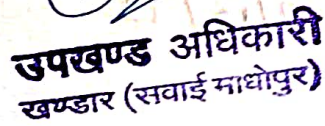 उपखण्ड अधिकारी
खण्डार (सवाई माधोपुर)